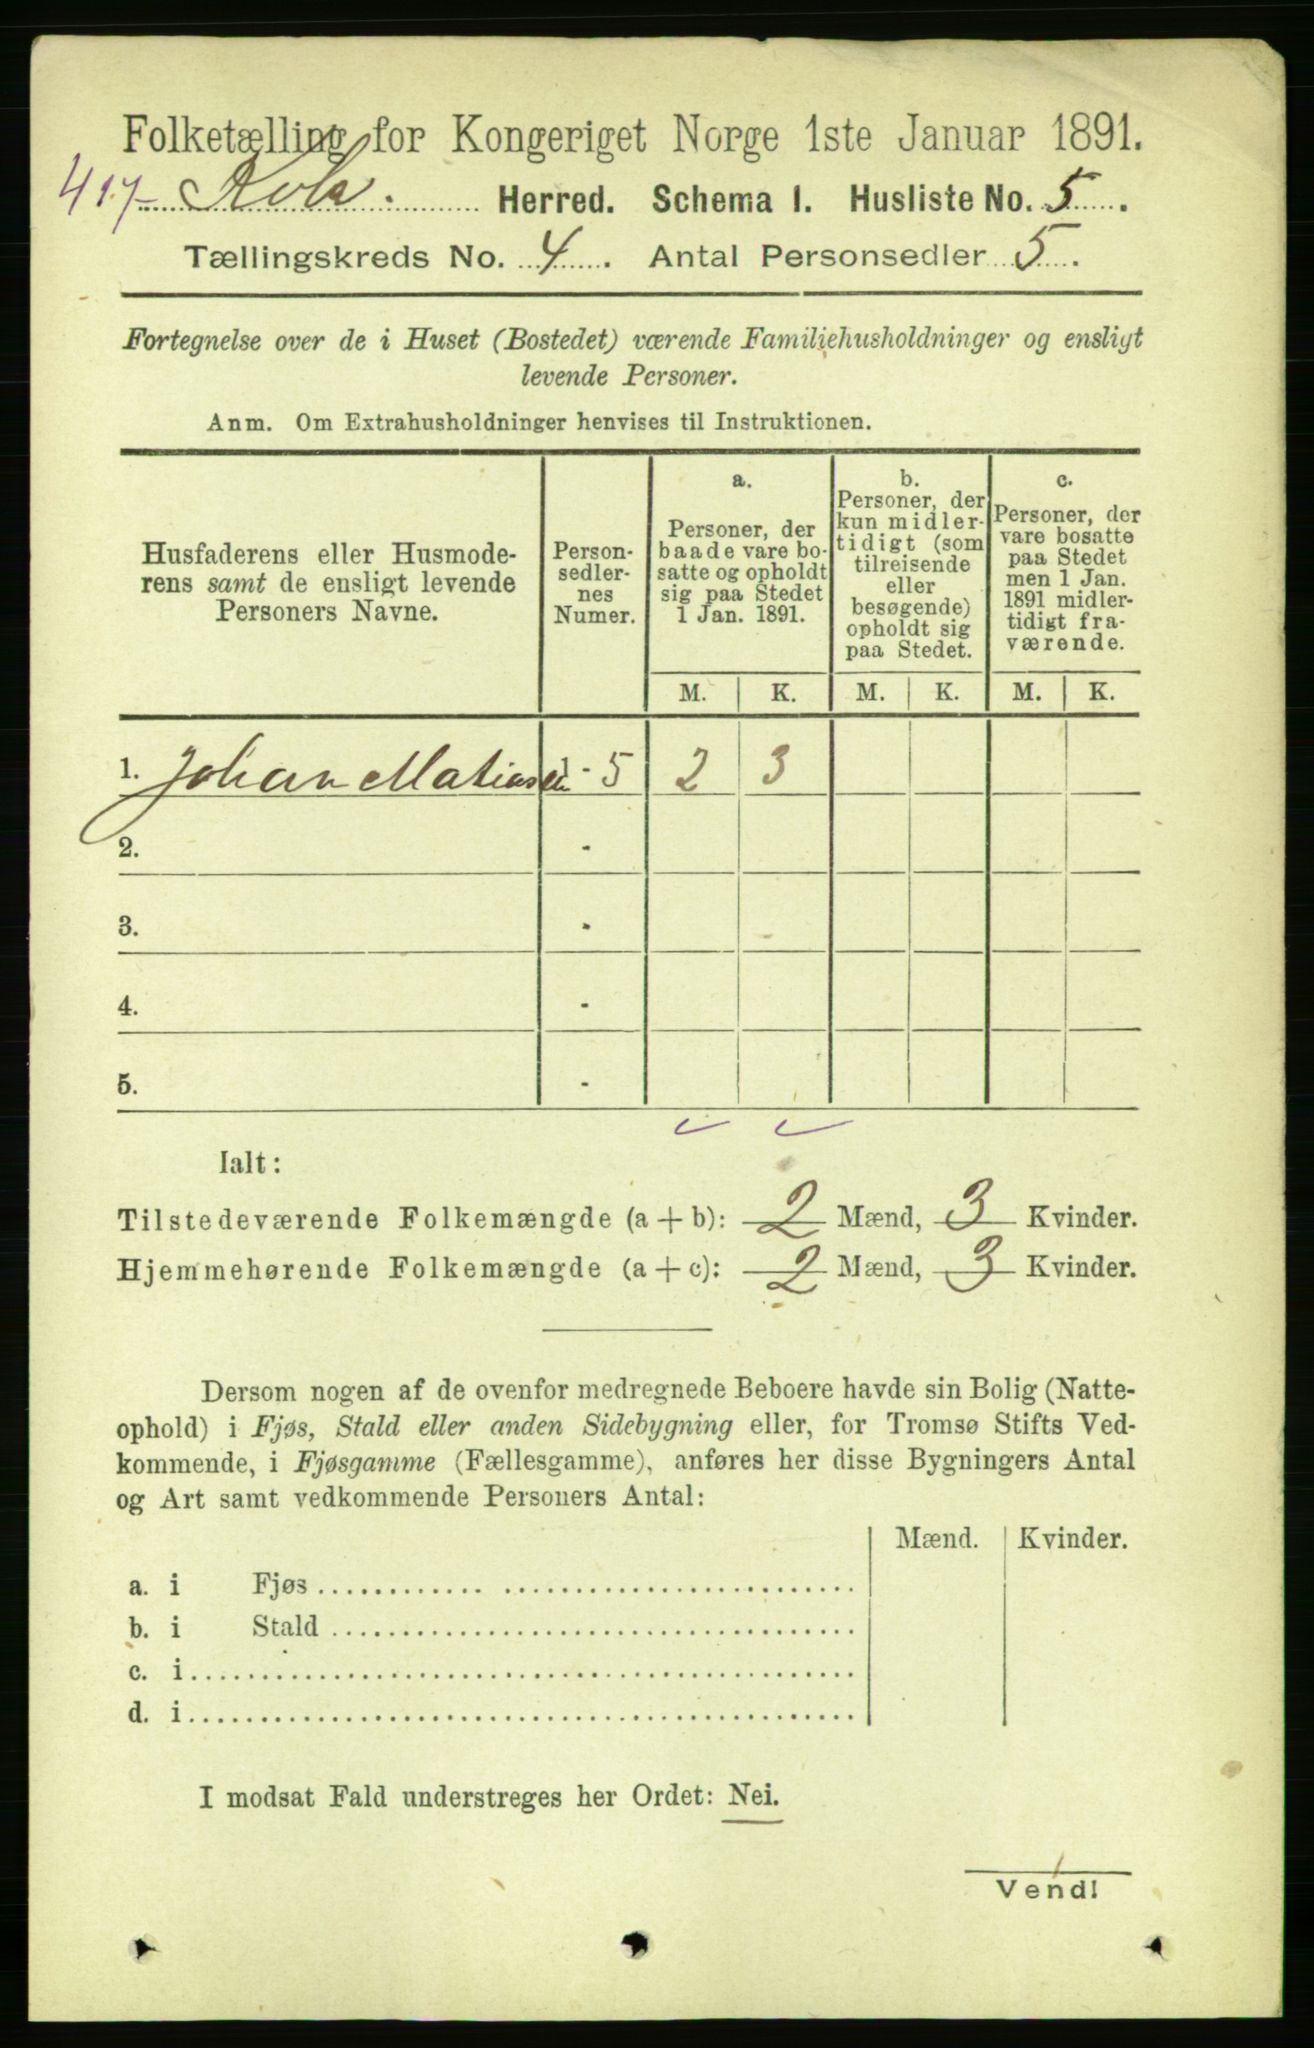 Folketælling for Kongeriget Norge 1ste Januar 1891.
417 Kola. Herred. Schema 1. Husliste No. 5.
Tællingskreds No. 4. Antal Personsedler 5.
Fortegnelse over de i Huset (Bostedet) værende Familiehusholdninger og ensligt
levende Personer.
Anm. Om Extrahusholdninger henvises til Instruktionen.
Husfaderens eller Husmode-
rens samt de ensligt levende
Personers Navne.
Person-
sedler-
nes
Numer.
a.
Personer, der
baade vare bo-
satte og opholdt
sig paa Stedet
1 Jan. 1891.
b.
Personer, der
kun midler-
tidigt (som
tilreisende
eller
besøgende)
opholdt sig
paa Stedet.
c.
Personer, der
vare bosatte
paa Stedet
men 1 Jan.
1891 midler-
tidigt fra-
værende.
M. K. M. K. M. K.
1. Johan Matiasen 1 - 5 2 3
2. -
3. -
4. -
5. -
Ialt:
Tilstedeværende Folkemængde (a + b): 2 Mænd, 3 Kvinder.
Hjemmehørende Folkemængde (a + c): 2 Mænd, 3 Kvinder.
Dersom nogen af de ovenfor medregnede Beboere havde sin Bolig (Natte-
ophold) i Fjøs, Stald eller anden Sidebygning eller, for Tromsø Stifts Ved-
kommende, i Fjøsgamme (Fællesgamme), anføres her disse Bygningers Antal
og Art samt vedkommende Personers Antal:
Mænd. Kvinder.
a. i Fjøs
b. i Stald
c. i
d. i
I modsat Fald understreges her Ordet: Nei.
Vend!